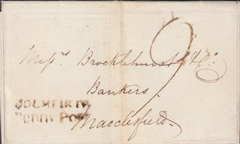 Messrs Brocklehurst & Co.
Bankers
Macclesfield
9
HOLMFIRTH
Penny Post